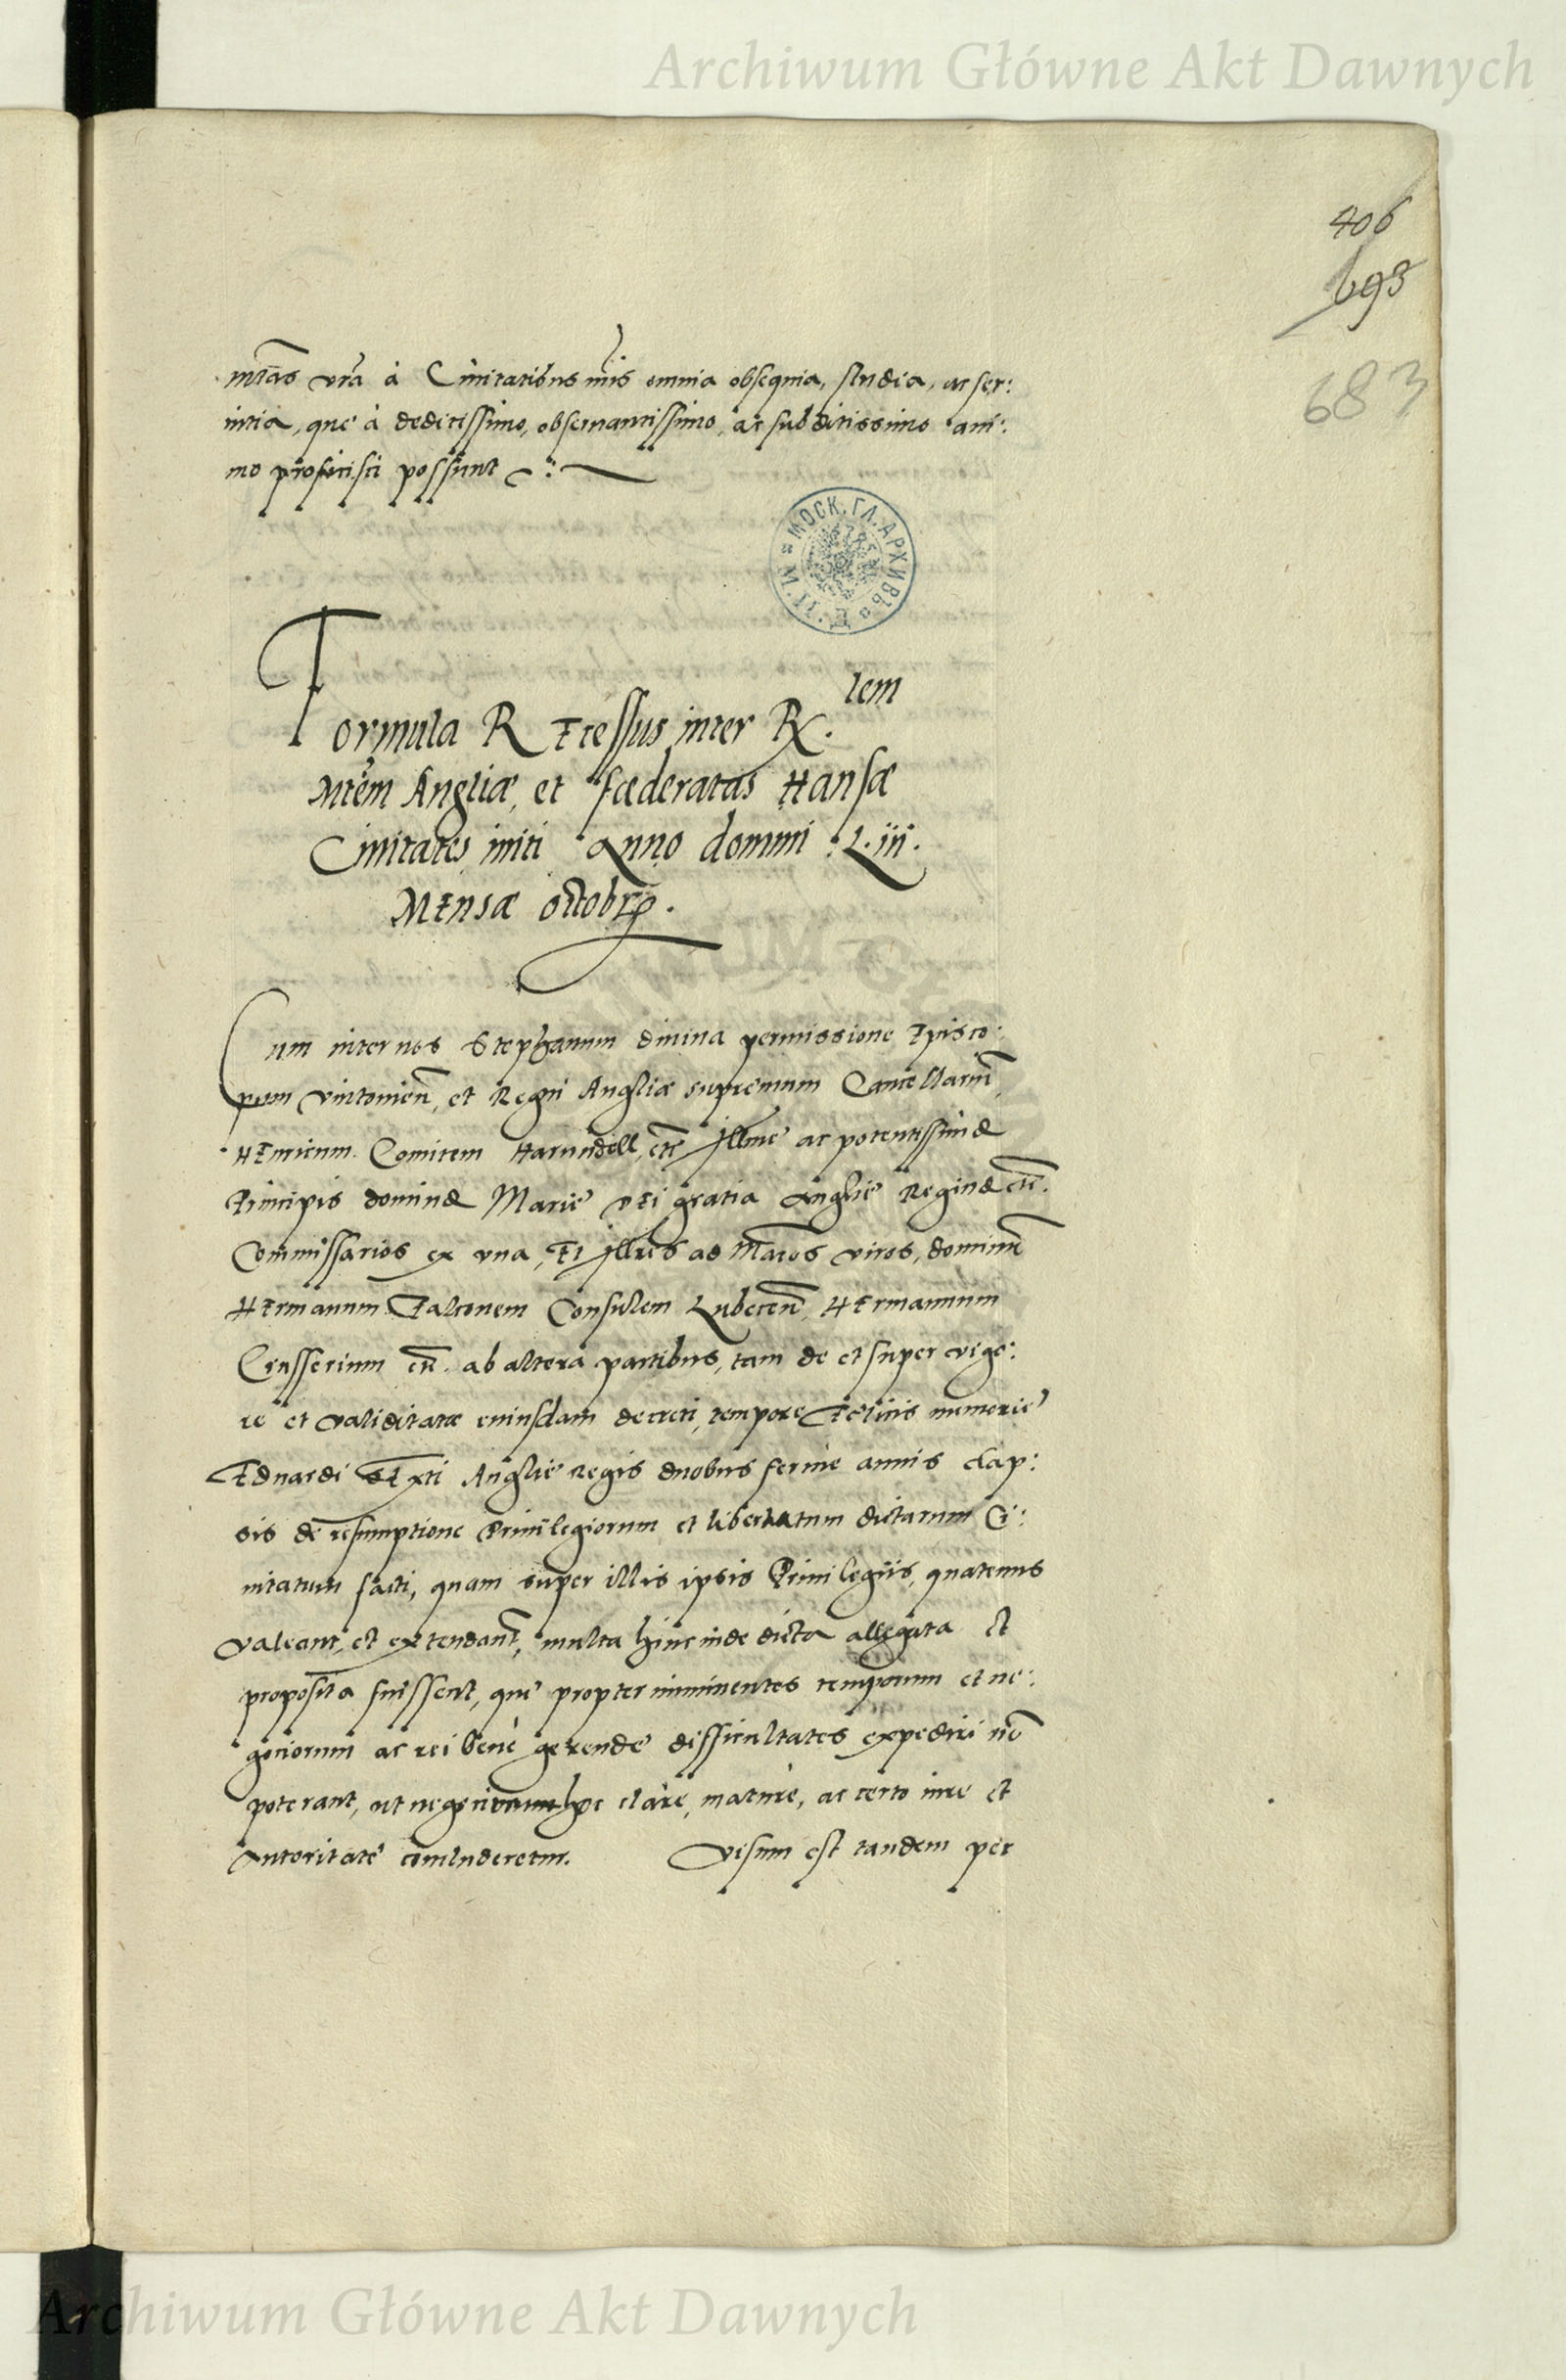 Archiwum Główne Akt Dawnych
406
693
683
mtas vra à Ciuitatibus nris omnia obsequia, studia, ac ser:
uitia, que à deditissimo, obseruantissimo, ac subditissimo ani:
mo proficisci possunt
МОСК. ГЛ. АРХИВЪ
Formula Recessus inter R. lem
Mtem Angliæ, et fœderatas Hansæ
Ciuitates initi Anno domini Liii.
Mensæ octobris.
Cum inter nos Stephanum diuina permissione Episco:
pum vintonien, et Regni Angliæ supremum Cancellarium,
Henricum Comitem Harundell, etc Illme ac potentissimæ
Principis dominæ Marie Dei gratia Anglie Reginæ etc.
Commissarios ex vna, Et Illres ac Mcos viros, dominum
Hermannum Falconem Consulem Lubecen, Hermannum
Crusserium etc. ab altera partibus, tam de et super vigo:
re et validitate cuiusdam decreti, tempore Felicis memorie
Eduardi Sexti Anglie regis duobus ferme annis elap:
sis de resumptione Priuilegiorum et libertatum dictarum Ci:
uitatum facti, quam super illis ipsis Priuilegiis, quatenus
valeant, et extendant, multa hinc inde dicta allegata et
proposita fuissent, que propter imminentes temporum et ne:
gociorum ac rei bene gerende difficultates expediri no
poterant, ut negocium hoc clare, mature, ac certo iure et
autoritate concluderetur. Visum est tandem per
Archiwum Główne Akt Dawnych